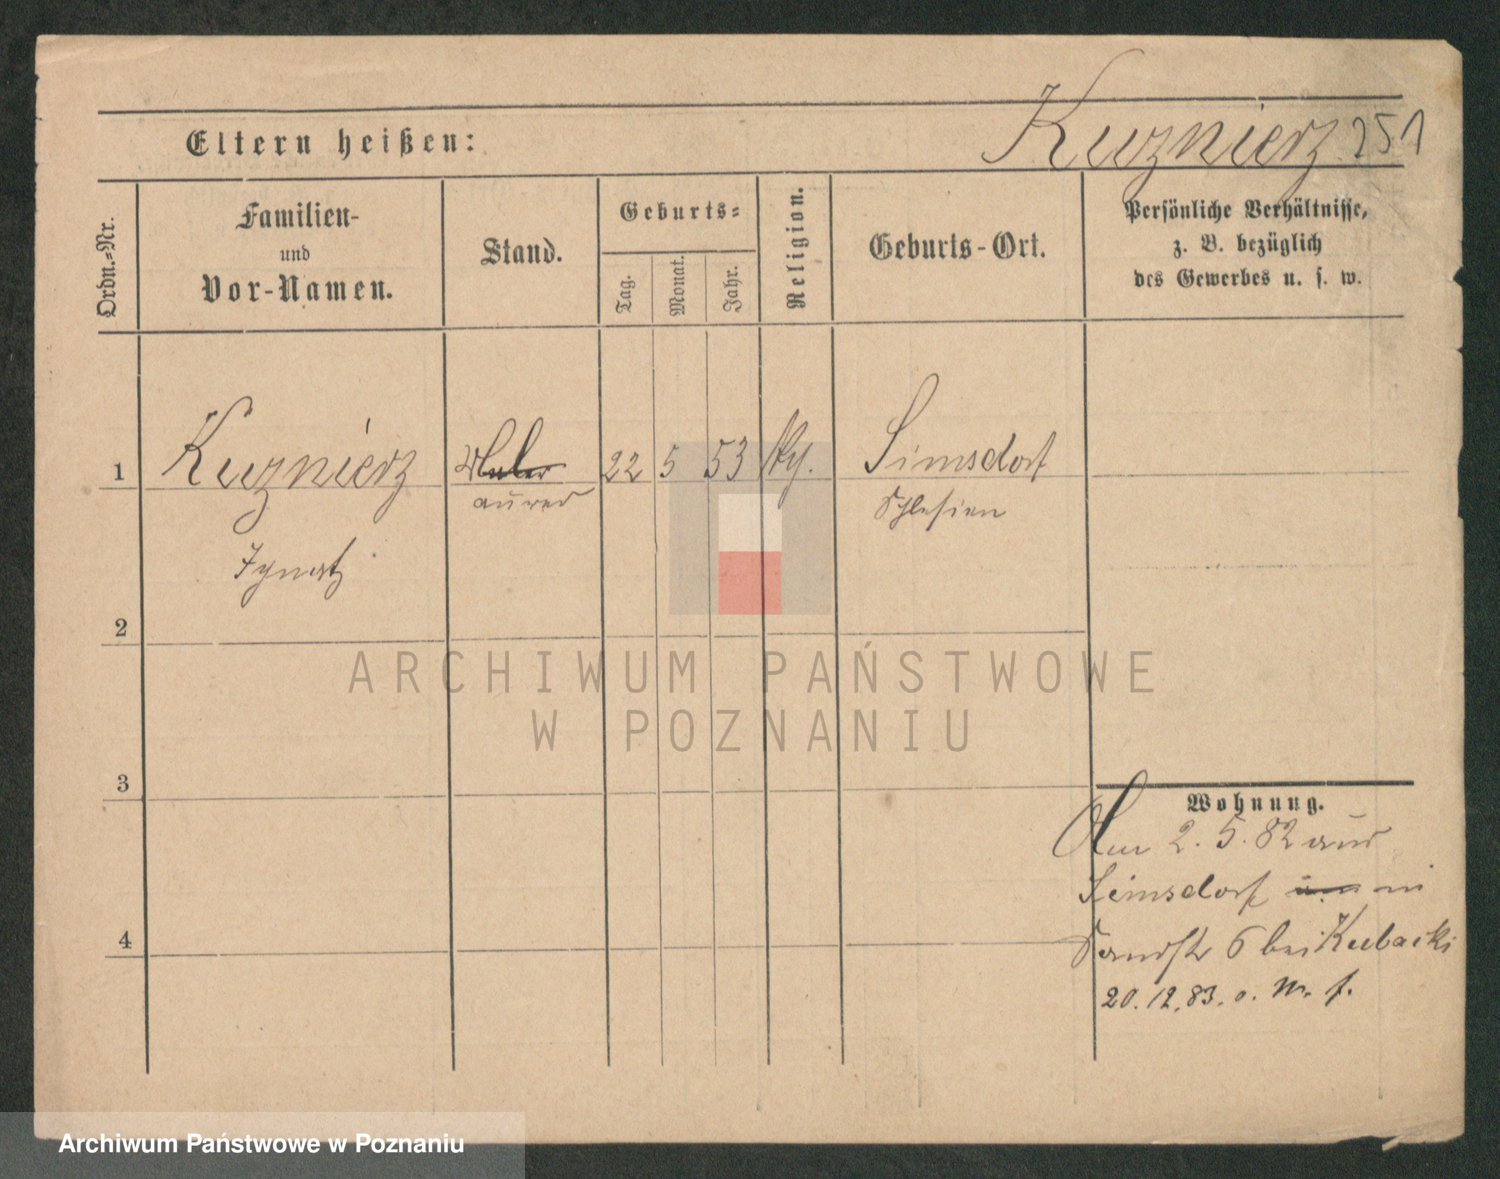 Eltern heißen:
Kuznierz 251
Ordn.-Nr.
Familien-
und
Vor-Namen.
Stand.
Geburts-
Tag.
Monat.
Jahr.
Religion.
Geburts-Ort.
Persönliche Verhältnisse,
z. B. bezüglich
des Gewerbes u. s. w.
1
Kuznierz
Maler
22 5 53
Simsdorf
aurer
Schlesien
Ignatz
2
ARCHIWUM PAŃSTWOWE
W POZNANIU
3
Wohnung.
Am 2.5.82 aus
Simsdorf in
Sandstr 6 bei Kubacki
4
20.12.83. o. M. f.
Archiwum Państwowe w Poznaniu